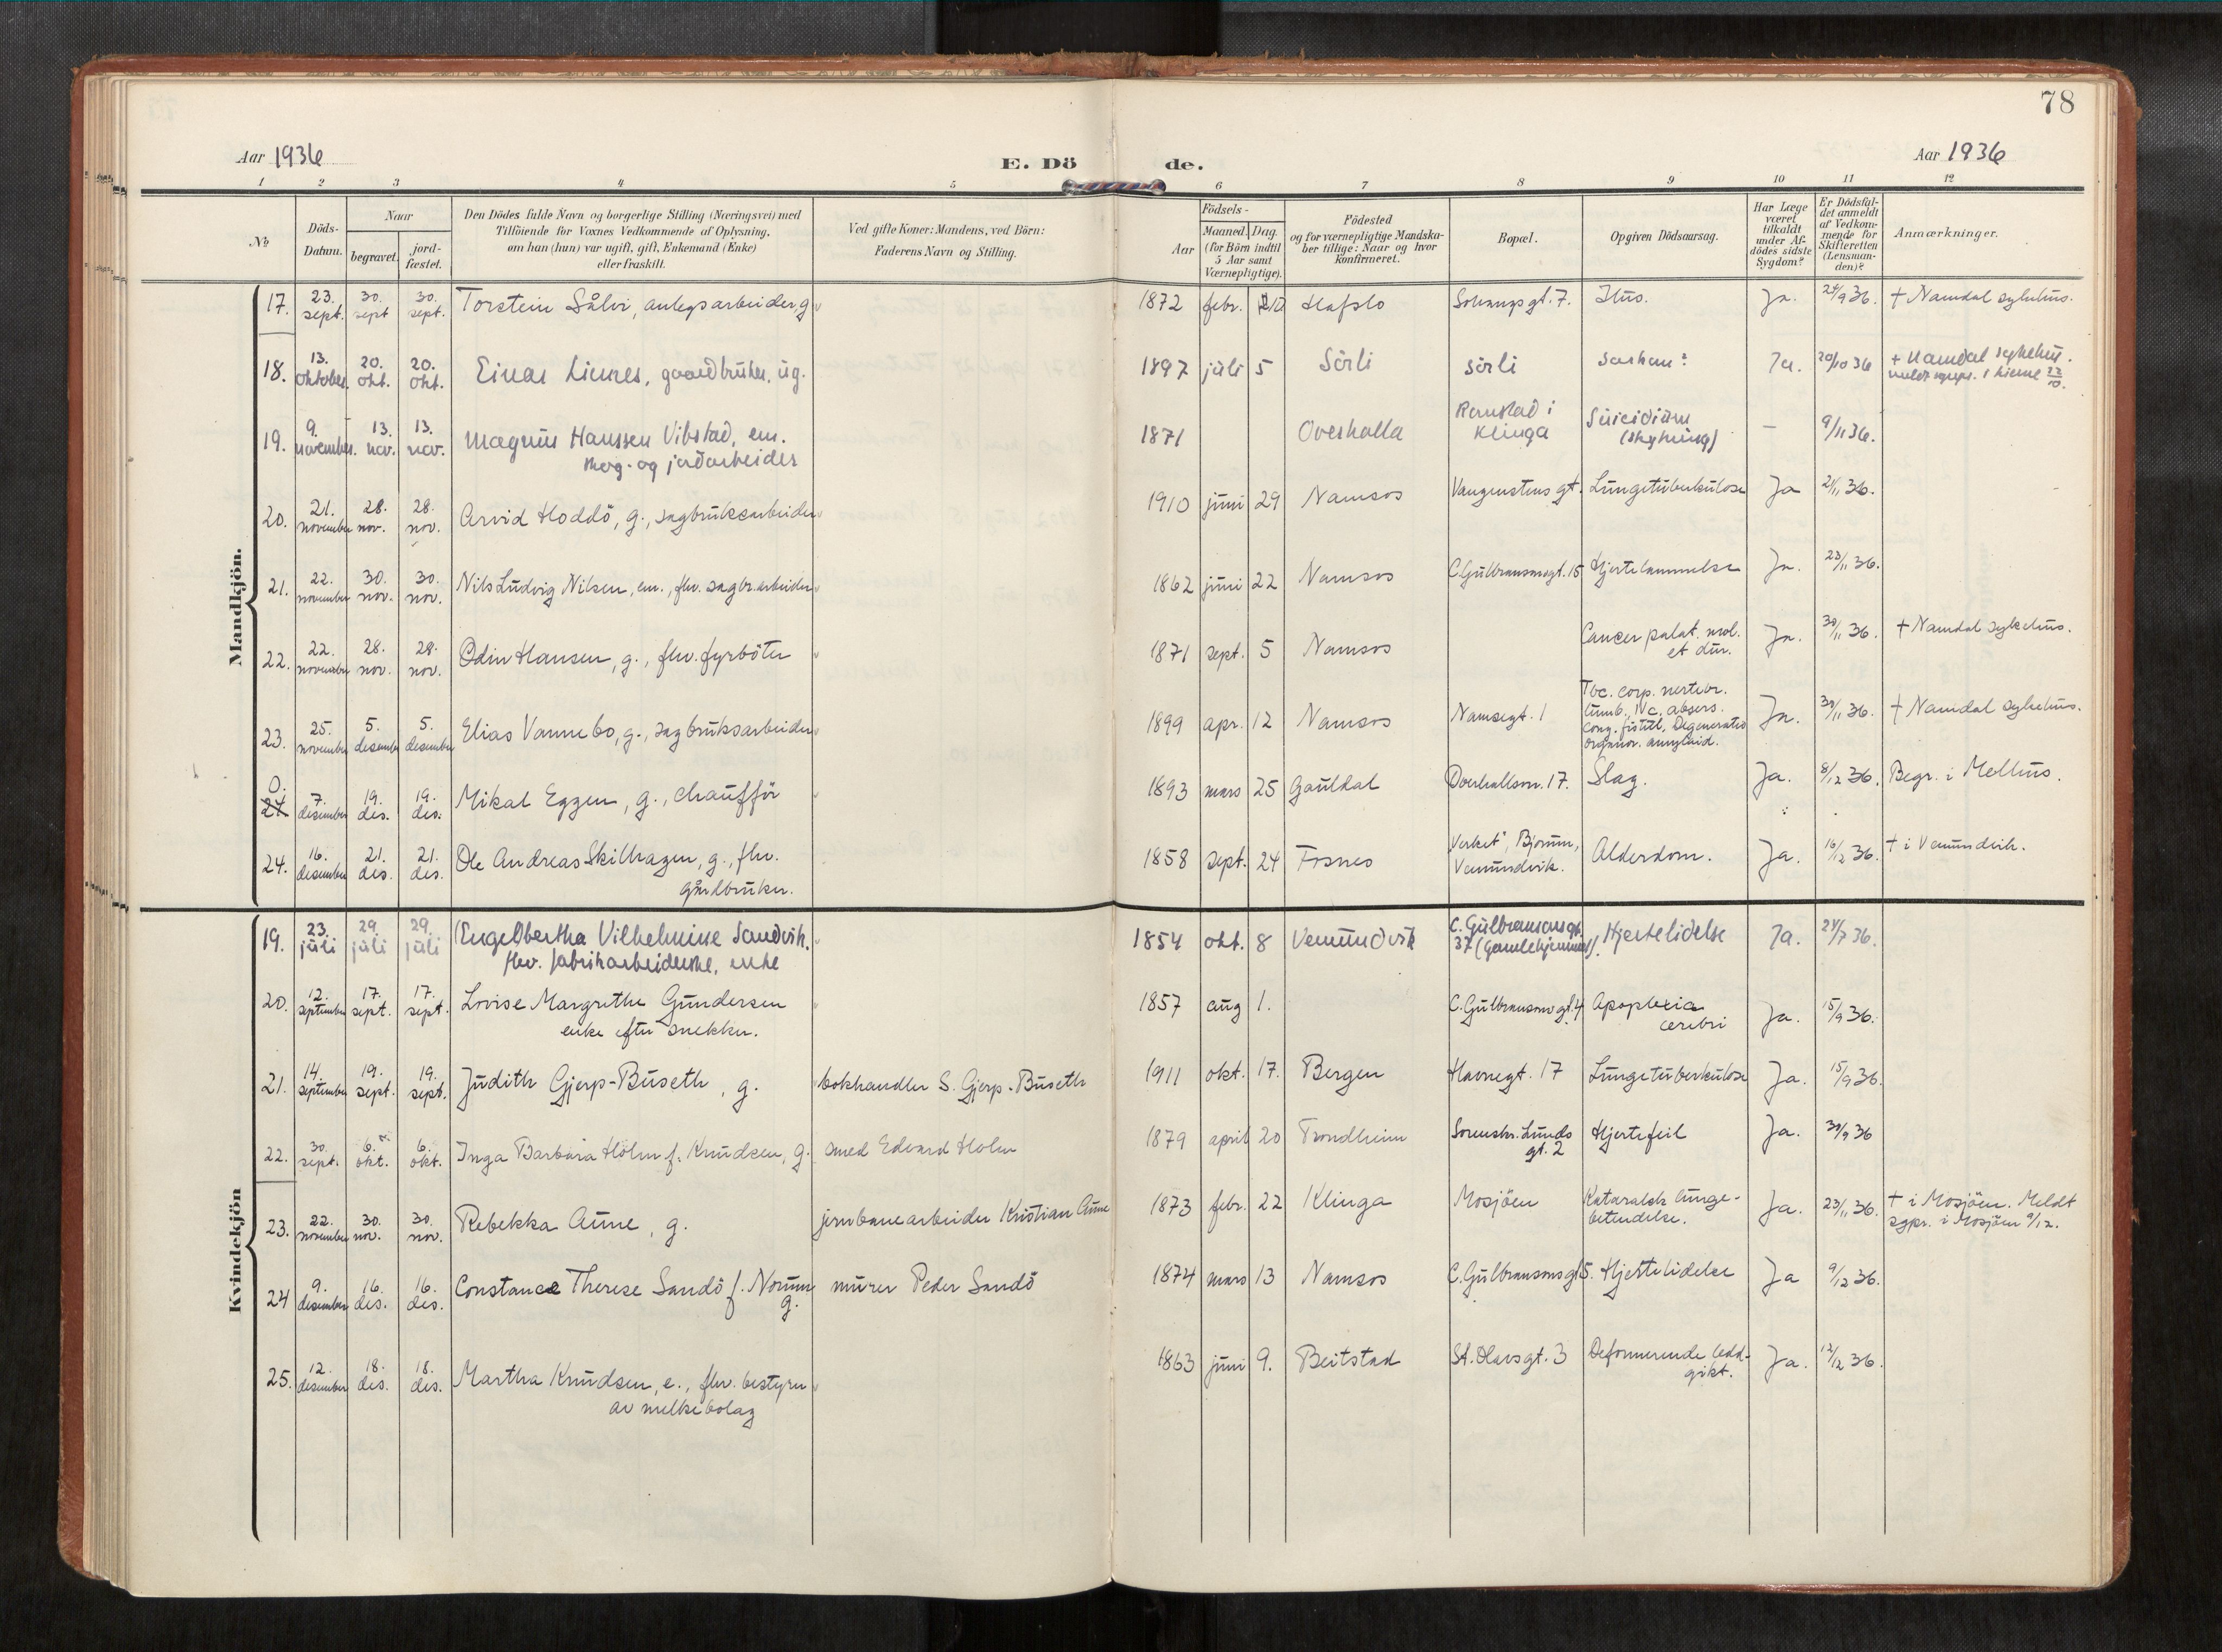 78
Aar 1936
E. Dö
de.
Aar 1936
1 2 3 4 5 6 7 8 9 10 11 12
№
Döds-
Datum.
Naar
begravet.
jord-
fæstet.
Den Dödes fulde Navn og borgerlige Stilling (Næringsvei) med
Tilföiende for Voxnes Vedkommende af Oplysning,
om han (hun) var ugift, gift, Enkemand (Enke)
eller fraskilt.
Ved gifte Koner: Mandens, ved Börn:
Faderens Navn og Stilling.
Födsels-
Aar
Maaned. Dag.
(for Börn indtil
5 Aar samt
Værnepligtige).
Födested
og for værnepligtige Mandska-
ber tillige: Naar og hvor
konfirmeret.
Bopæl.
Opgiven Dödsaarsag.
Har Læge
været
tilkaldt
under Af-
dödes sidste
Sygdom?
Er Dödsfal-
det anmeldt
af Vedkom-
mende for
Skifteretten
(Lensman-
den)?
Anmærkninger.
Mandkjön.
17. 23. sept. 30. sept 30. sept. Torstein Sålvi, anlegsarbeider, g 1872 febr. Hafslo gt. 7. Ja. 24/9 36. + Namdal sykehus.
18. 13. oktober 20. okt. 20. okt. Einar Linnes, gaardbruker, ug. 1897 juli 5 Sörli Sörli Ja. 20/10 36 + Namdal sykehus.
19. 9. november. 13. nov. 13. nov. Magnus Hanssen Vibstad, em.
skog- og jordarbeider 1871 Overhalla Ramstad i
Klinga Suicidium
(skytning) — 9/11 36.
20. 21. november 28. nov. 28. nov. Arvid Hoddö, g., sagbruksarbeider 1910 juni 29 Namsos Vangenstens gt. Lungetuberkulose Ja 21/11 36.
21. 22. november 30. nov. 30. nov. Nils Ludvig Nilsen, em., fhv. sagbr.arbeider 1862 juni 22 Namsos C. Gulbransonsgt. 15 Hjertelammelse Ja. 23/11 36.
22. 22. november 28. nov. 28. nov. Odin Hansen, g., fhv. fyrböter 1871 sept. 5 Namsos Cancer palat. mol.
et dur. Ja. 30/11 36. + Namdal sykehus.
23. 25. november 5. desember 5. desember Elias Vannebo, g., sagbruksarbeider 1899 apr. 12 Namsos Namsegt. 1 Tbc. corp. vertebr.
lumb. IV c. absces.
cong. fistul, Degeneratio
organor. amyloid. Ja. 30/11 36. + Namdal sykehus.
0. 24 7. desember 19. des. 19. des. Mikal Eggen, g., chaufför 1893 mars 25 Gauldal Overhallsvn. 17. Slag. Ja. 8/12 36. Begr. i Melhus.
24. 16. desember 21. des. 21. des. Ole Andreas Skilhagen, g., fhv.
gårdbruker. 1858 sept. 24 Fosnes Verket, Bjorum,
Vemundvik. Alderdom. Ja. 16/12 36. + i Vemundvik.
Kvindekjön
19. 23. juli 29. juli 29. juli Engelbertha Vilhelmine Sandvik.
fhv. fabrikarbeiderske, enke 1854 okt. 8 Vemundvik C. Gulbransonsgt.
37 (Gamlehjemmet). Hjertelidelse Ja. 24/7 36.
20. 12. september 17. sept. 17. sept. Lovise Margrethe Gundersen
enke efter snekker. 1857 aug 1. C. Gulbransonsgt. 4 Apoplexia
cerebri Ja. 15/9 36.
21. 14. september 19. sept. 19. sept. Judith Gjerp-Buseth, g. bokhandler S. Gjerp-Buseth 1911 okt. 17. Bergen Havnegt. 17 Lungetuberkulose Ja. 15/9 36.
22. 30. sept. 6. okt. 6. okt. Inga Barbara Holm f. Knudsen, g. smed Edvard Holm 1879 april 20 Trondheim Sorenskr. Lunds
gt. 2 Hjertefeil Ja. 30/9 36
23. 22. november 30. nov. 30. nov. Rebekka Aune, g. jernbanearbeider Kristian Aune 1873 febr. 22 Klinga Mosjöen Kataralsk lunge-
betendelse. Ja. 23/11 36. + i Mosjöen. Meldt
sgpr. i Mosjöen 9/12.
24 9. desember 16. des. 16. des. Constance Therese Sandö f. Norum
g. murer Peder Sandö 1874 mars 13 Namsos C. Gulbransonsgt 5. Hjertelidelse Ja 9/12 36.
25. 12. desember 18. des. 18. des. Martha Knudsen, e., fhv. bestyrer
av melkebolag 1863 juni 9. Beitstad St. Olavsgt. 3 Deformerende ledd-
gikt. Ja. 12/12 36.